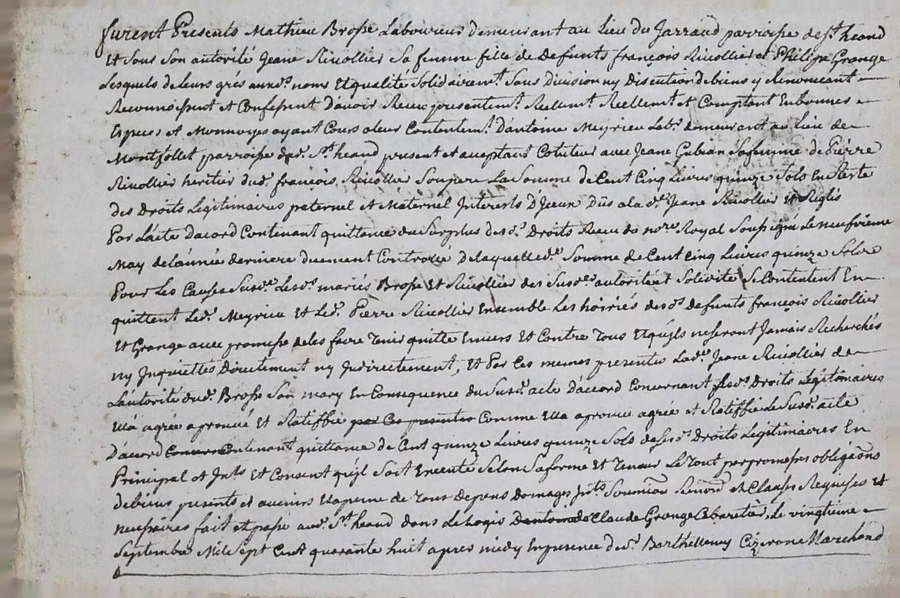 furent Presents Mathieu Brosse Laboureur demeurant au Lieu du Jarraud parroisse de st heand
Et sous son autorité Jeane Rivollier sa femme fille de defunts françois Rivollier et Philipe Grange
Lesquels de leurs grés aux d. noms Et qualité solidairemt. sans division ny discution de biens y Renonceant
Reconnoissent et Confessent d'avoir Receu presentemt. Reellemt. Reellement et Comptant En bonnes
Especes et Monnoyes ayant Cours a leur Contentemt. d'antoine Meyrieu labr. demeurant au lieu de
Montfollet parroisse dud. St. heand present et aceptant Cotuteur avec Jeane Gubian sa femme de Pierre
Rivollier heritier dud. françois Rivollier son pere La somme de Cent Cinq Livres quinze sols En Reste
des Droits Legitimaires paternel et Maternel Interests D'Jceux dus a la de. Jeane Rivollier et Reglés
Par L'acte d'acord Contenant quittance du surplus desd. Droits Receu de nore. Royal soussigné Le neufvieme
May de l'année derniere duement Controllé de laquelle de. somme de Cent Cinq Livres quinze sols
Pour Les Causes susd. Lesd. mariés Brosse et Rivollier des susd. autorité et solidité se Contentent En
quittent Led. Meyrieu et Led. Pierre Rivollier Ensemble Les hoirries desd. defunts françois Rivollier
Et Grange avec promesse de les faire Tenir quitte Envers Et Contre Tous Et quils ne seront Jamais Recherchés
ny Inquiettés Directement ny Indirectement, Et Par Ces memes presentes Lad. Jeane Rivollier de
L'autorité dud. Brosse son mary En Consequence du susd. acte d'acord Concernant lesd. Droits Legitimaires
Ella agrée aprouvé Et Ratiffié par Ces presentes Comme Ella aprouve agrée et Ratiffie Le susd. acte
D'acord Concer Contenant quittance de Cent quinze Livres quinze sols desd. Droits Legitimaires En
Principal et Jnts. Et Consent quil soit Executé selon sa forme Et Teneur Le Tout par promesses obligeons
de biens presents et avenirs Et a peine de Tous depens domages Jnts. soumion Renon et Clauses Requises et
necessaires fait et passé aud. St. heand dans Le Logis Dantoine de Claude Grange Cabaretier, Le vingtieme
Septembre Mil sept Cent quarante huit apres midy En presence de sr. Barthellemy Cizeron Marchand